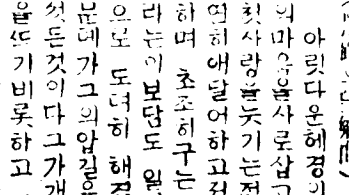 아릿다운혜경이
의마음을사로삽고
첫사랑을늣기는
히애달어하고
하며 초조히구는
라는이보담도 일
으로 도뎌히 해
데가그의압길을
것든것이다그가개
을뜨기비롯하고